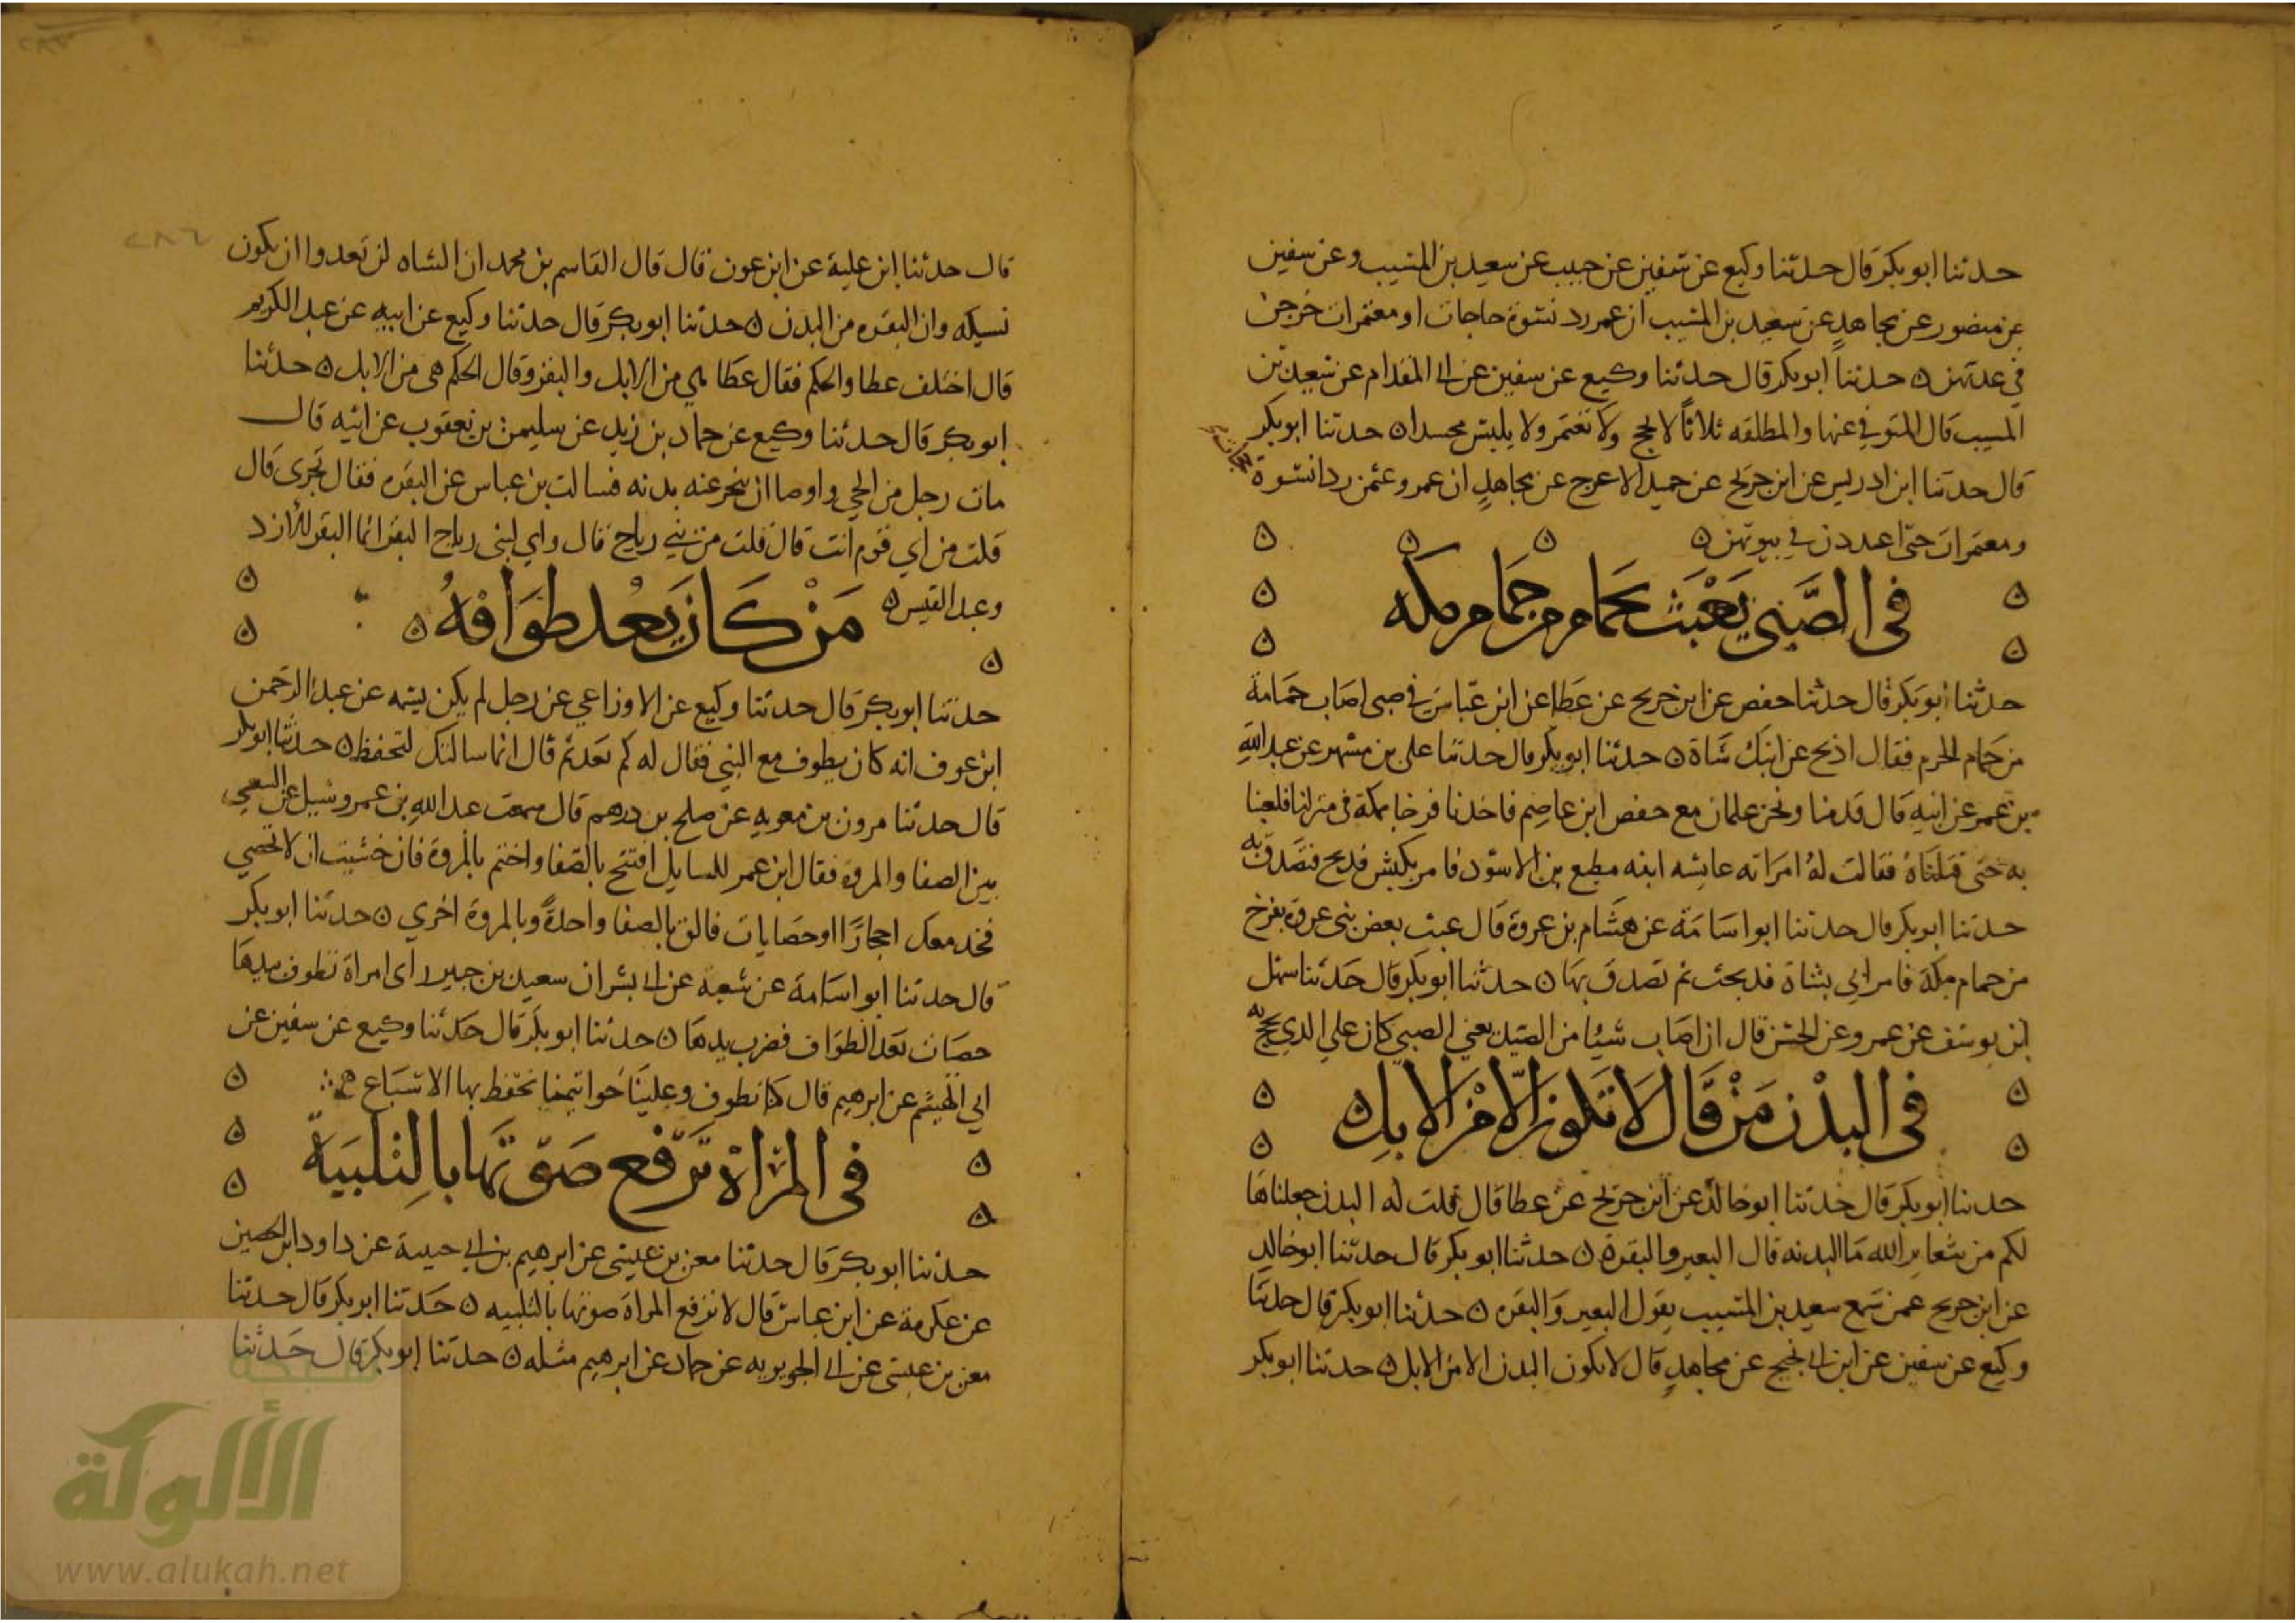 حدثنا ابو بكر قال حدثنا وكيع عن سفين عن حبيب عن سعيد بن المسيب وعن سفين
عن منصور عن مجاهد عن سعيد بن المسيب ان عمر رد نسوة حاجات او معتمرات خرجن
في عدتهن ه حدثنا ابو بكر قال حدثنا وكيع عن سفين عن ابي المقدام عن سعيد بن
المسيب قال المتوفي عنها والمطلقه ثلاثا لا تحج ولا تعتمر ولا يلبس مجسدا ه حدثنا ابو بكر
قال حدثنا ابن ادريس عن ابن جريج عن حميد الاعرج عن مجاهد ان عمر وعثمن ردا نسوة
ومعتمرات حتى اعددن في بيوتهن ه
في الصبي يعبث بحمام من حمام مكه
حدثنا ابو بكر قال حدثنا حفص عن ابن جريج عن عطا عن ابن عباس في صبي اصاب حمامة
من حمام الحرم فقال اذبح عن ابنك شاة ه حدثنا ابو بكر قال حدثنا علي بن مسهر عن عبد الله
بن عمر عن ابيه قال قدمنا ونحن غلمان مع حفص ابن عاصم فاخذنا فرخا بمكة في منزلنا فلعبنا
به حتى قتلناه فقالت له امراته عائشه ابنه مطيع بن الاسود فامر بكبش فذبح فتصدق به
حدثنا ابو بكر قال حدثنا ابو اسامة عن هشام بن عروة قال عبث بعض بني عروة بفرخ
من حمام مكة فامر ابي بشاة فذبحت ثم تصدق بها ه حدثنا ابو بكر قال حدثنا سهل
ابن يوسف عن عمرو عن الحسن قال ان اصاب شيئا من الصيد يعني الصبي كان علي الذي يحج به
في البدن من قال لا تكون الا من الابل ه
حدثنا ابو بكر قال حدثنا ابو خالد عن ابن جريج عن عطا قال قلت له البدن جعلناها
لكم من شعاير الله ما البدنه قال البعير والبقرة ه حدثنا ابو بكر قال حدثنا ابو خالد
عن ابن جريج عمن سمع سعيد بن المسيب يقول البعير والبقره ه حدثنا ابو بكر قال حدثنا
وكيع عن سفين عن ابن ابي نجيح عن مجاهد قال لا تكون البدن الا من الابل ه حدثنا ابو بكر
قال حدثنا ابن علية عن ابن عون قال قال القاسم بن محمد ان الشاه لن تعدوا ان يكون
نسيكه وان البقره من البدن ه حدثنا ابو بكر قال حدثنا وكيع عن ابيه عن عبد الكريم
قال اختلف عطا والحكم فقال عطا هي من الابل والبقر وقال الحكم هي من الابل ه حدثنا
ابو بكر قال حدثنا وكيع عن حماد بن زيد عن سليمن بن يعقوب عن ابيه قال
مات رجل من الحي واوصا ان ينحر عنه بدنه فسالت بن عباس عن البقره فقال تجزى قال
قلت من اي قوم انت قال قلت من بني رباح قال واي لبني رباح البقر انما البقر للازد
وعبد القيس ه
من كان يعد طوافه ه
حدثنا ابو بكر قال حدثنا وكيع عن الاوزاعي عن رجل لم يكن يسمه عن عبد الرحمن
ابن عوف انه كان يطوف مع النبي فقال له كم تعد ثم قال انما سالتك لتحفظ ه حدثنا ابو بكر
قال حدثنا مرون بن معويه عن صلح بن درهم قال سمعت عبد الله بن عمر وسيل عن السعي
بين الصفا والمروه فقال ابن عمر للسايل افتتح بالصفا واختم بالمروة فان خشيت ان لا تحصي
فخذ معك احجارا او حصايات فالق بالصفا واحدة وبالمروة اخري ه حدثنا ابو بكر
قال حدثنا ابو اسامة عن شعبه عن ابي بشر ان سعيد بن جبير راى امراة تطوف بيدها
حصات تعد الطواف فضرب يدها ه حدثنا ابو بكر قال حدثنا وكيع عن سفين عن
ابي الهيثم عن ابرهيم قال كنا نطوف وعلينا خواتيمنا نحفظ بها الاسباع
في المراة ترفع صوتها بالتلبية
حدثنا ابو بكر قال حدثنا معن بن عيسى عن ابرهيم بن ابي حبيبة عن داود ابن الحصين
عن عكرمة عن ابن عباس قال لا ترفع المراة صوتها بالتلبيه ه حدثنا ابو بكر قال حدثنا
معن بن عيسى عن ابي الجويريه عن حماد عن ابرهيم مثله ه حدثنا ابو بكر قال حدثنا
شبكة
الألوكة
www.alukah.net